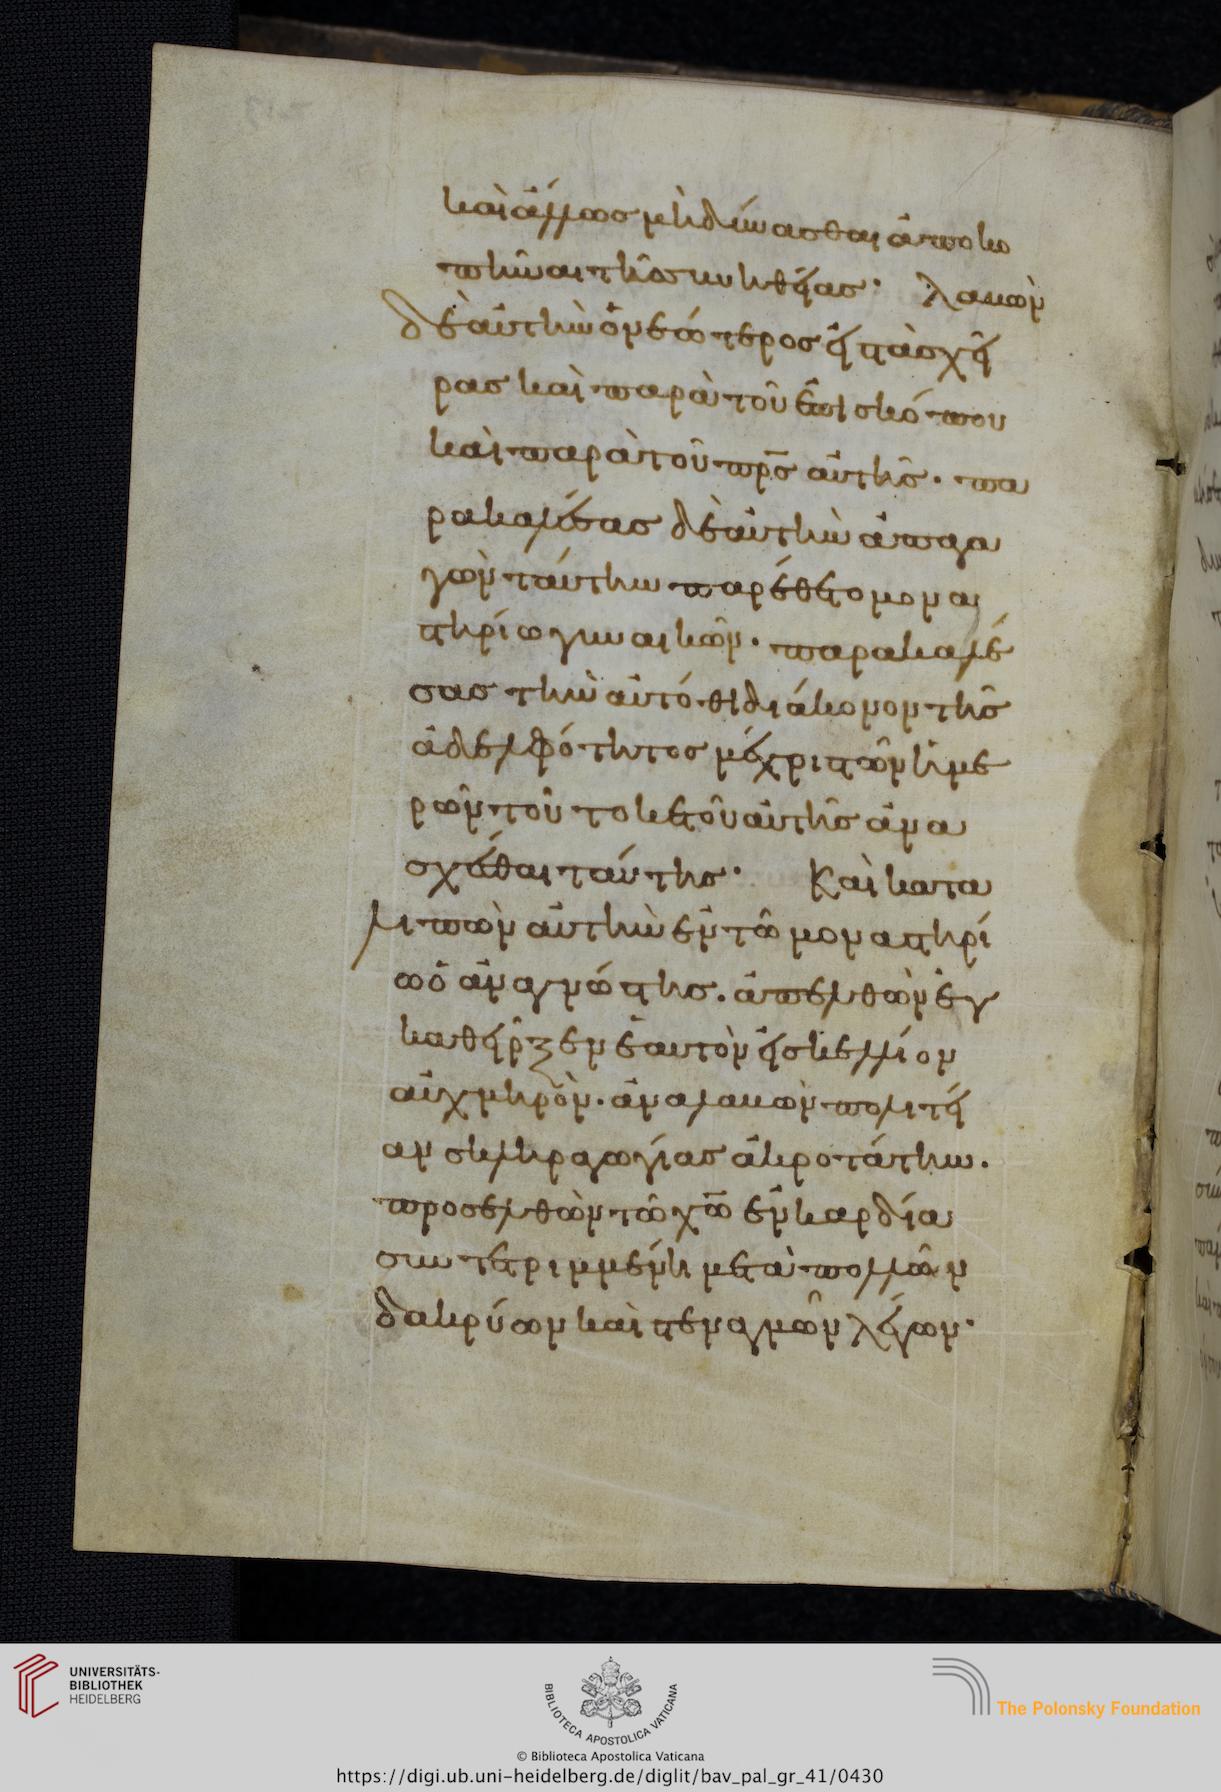 καὶ ἄλλωσ μὴ δύνασθαι ἀποκο
πῆναι τῆσ συνηθείασ· λαβὼν
δὲ αὐτὴν ὁ νεώτεροσ εἰσ τὰσ χεῖ
ρασ καὶ παρὰ τοῦ ἐπισκόπου
καὶ παρὰ τοῦ πρσ αὐτῆσ. πα
ρακαλέσασ δὲ αὐτὴν ἀπαγα
γὼν ταύτην παρέθετο μονα
στηρίω γυναικῶν. παρακαλέ
σασ τὴν αὐτόθι διάκονον τῆσ
ἀδελφότητοσ μέχρι τῶν ἡμε
ρῶν τοῦ τοκετοῦ αὐτῆσ ἀνα
σχέσθαι ταύτησ· Καὶ κατα
λιπὼν αὐτὴν ἐν τῶ μοναστηρί
ω ὁ ἀναγνώστησ. ἀπελθὼν ἐγ
καθεῖρξεν ἑαυτὸν εἰσ κελλίον
αὐχμηρὸν. ἀναλαβὼν πολιτεί
αν σκληραγωγίασ ἀκροτάτην.
προσελθὼν τῶ χω ἐν καρδία
συντετριμμένη μετὰ πολλῶν
δακρύων καὶ στεναγμῶν λέγων·
UNIVERSITÄTS-
BIBLIOTHEK
HEIDELBERG
BIBLIOTECA APOSTOLICA VATICANA
The Polonsky Foundation
© Biblioteca Apostolica Vaticana
https://digi.ub.uni-heidelberg.de/diglit/bav_pal_gr_41/0430